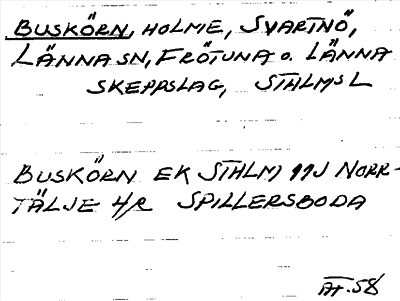 BUSKÖRN, HOLME, SVARTNÖ,
LÄNNA SN, FRÖTUNA O. LÄNNA
SKEPPSLAG, STHLMS L
BUSKÖRN EK STHLM 11J NORR-
TÄLJE 4/R SPILLERSBODA
ÅT. 58